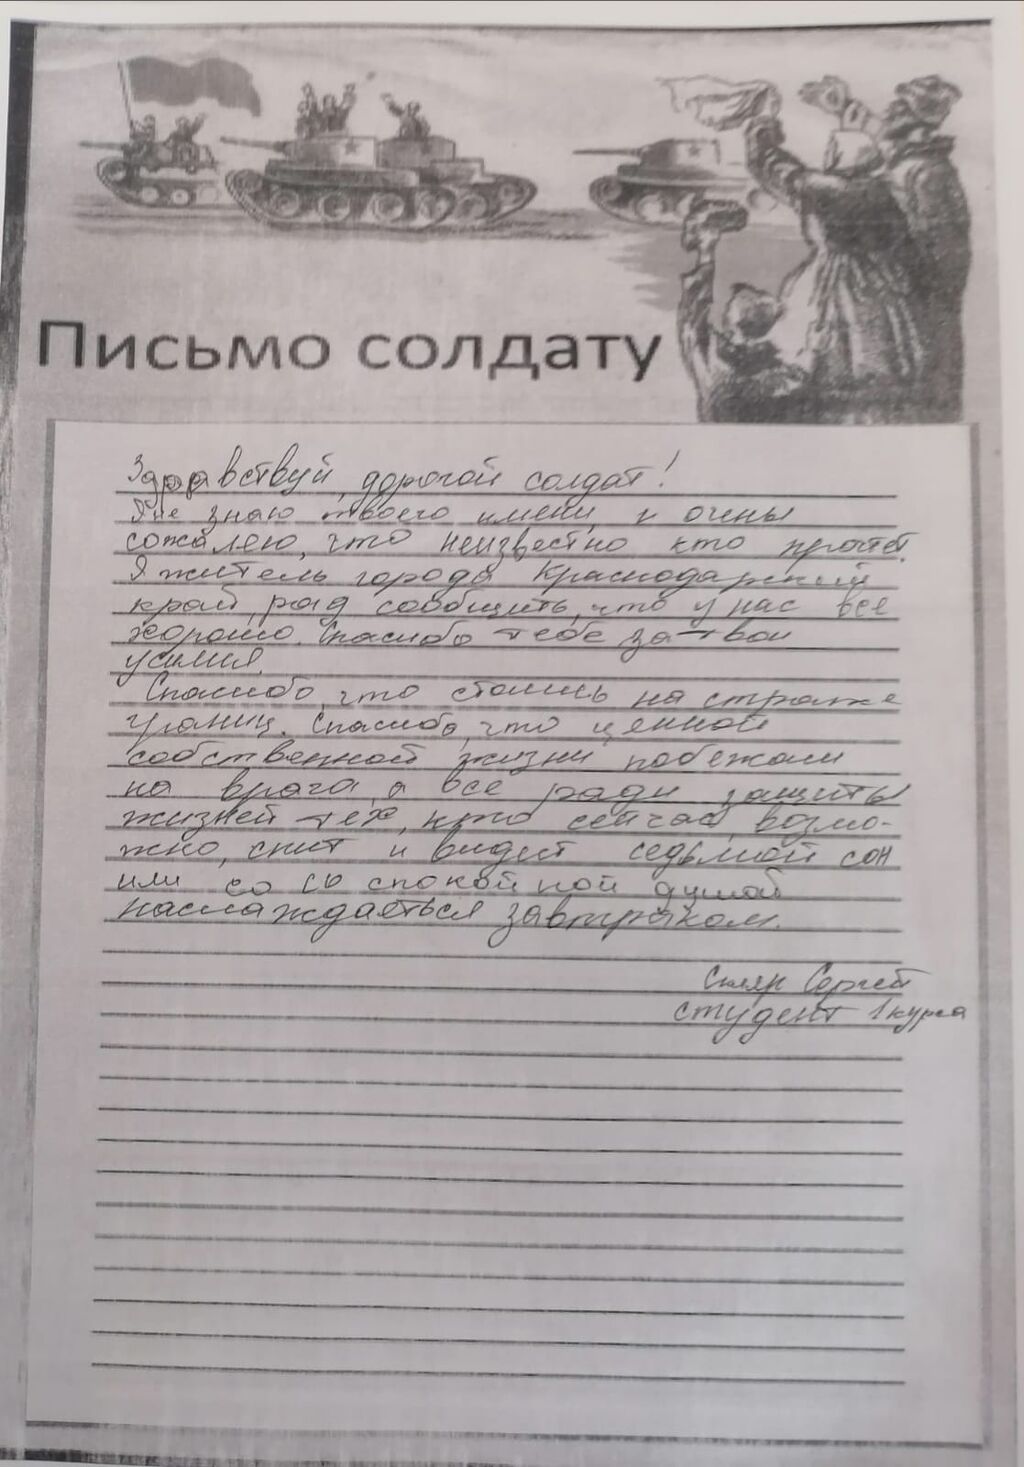 Письмо солдату
Здравствуй, дорогой солдат!
Я не знаю твоего имени, и очень
сожалею, что неизвестно кто прочтет.
Я житель города Краснодарский
край, рад сообщить, что у нас все
хорошо. Спасибо тебе за твои
усилия.
Спасибо, что стоишь на страже
границ. Спасибо, что ценной
собственной жизни побежали
на врага, а все ради защиты
жизней тех, кто сейчас, возмо-
жно, спит и видет седьмой сон
или со со спокойной душой
наслаждаеться завтраком.
Скляр Сергей
студент 1 курса